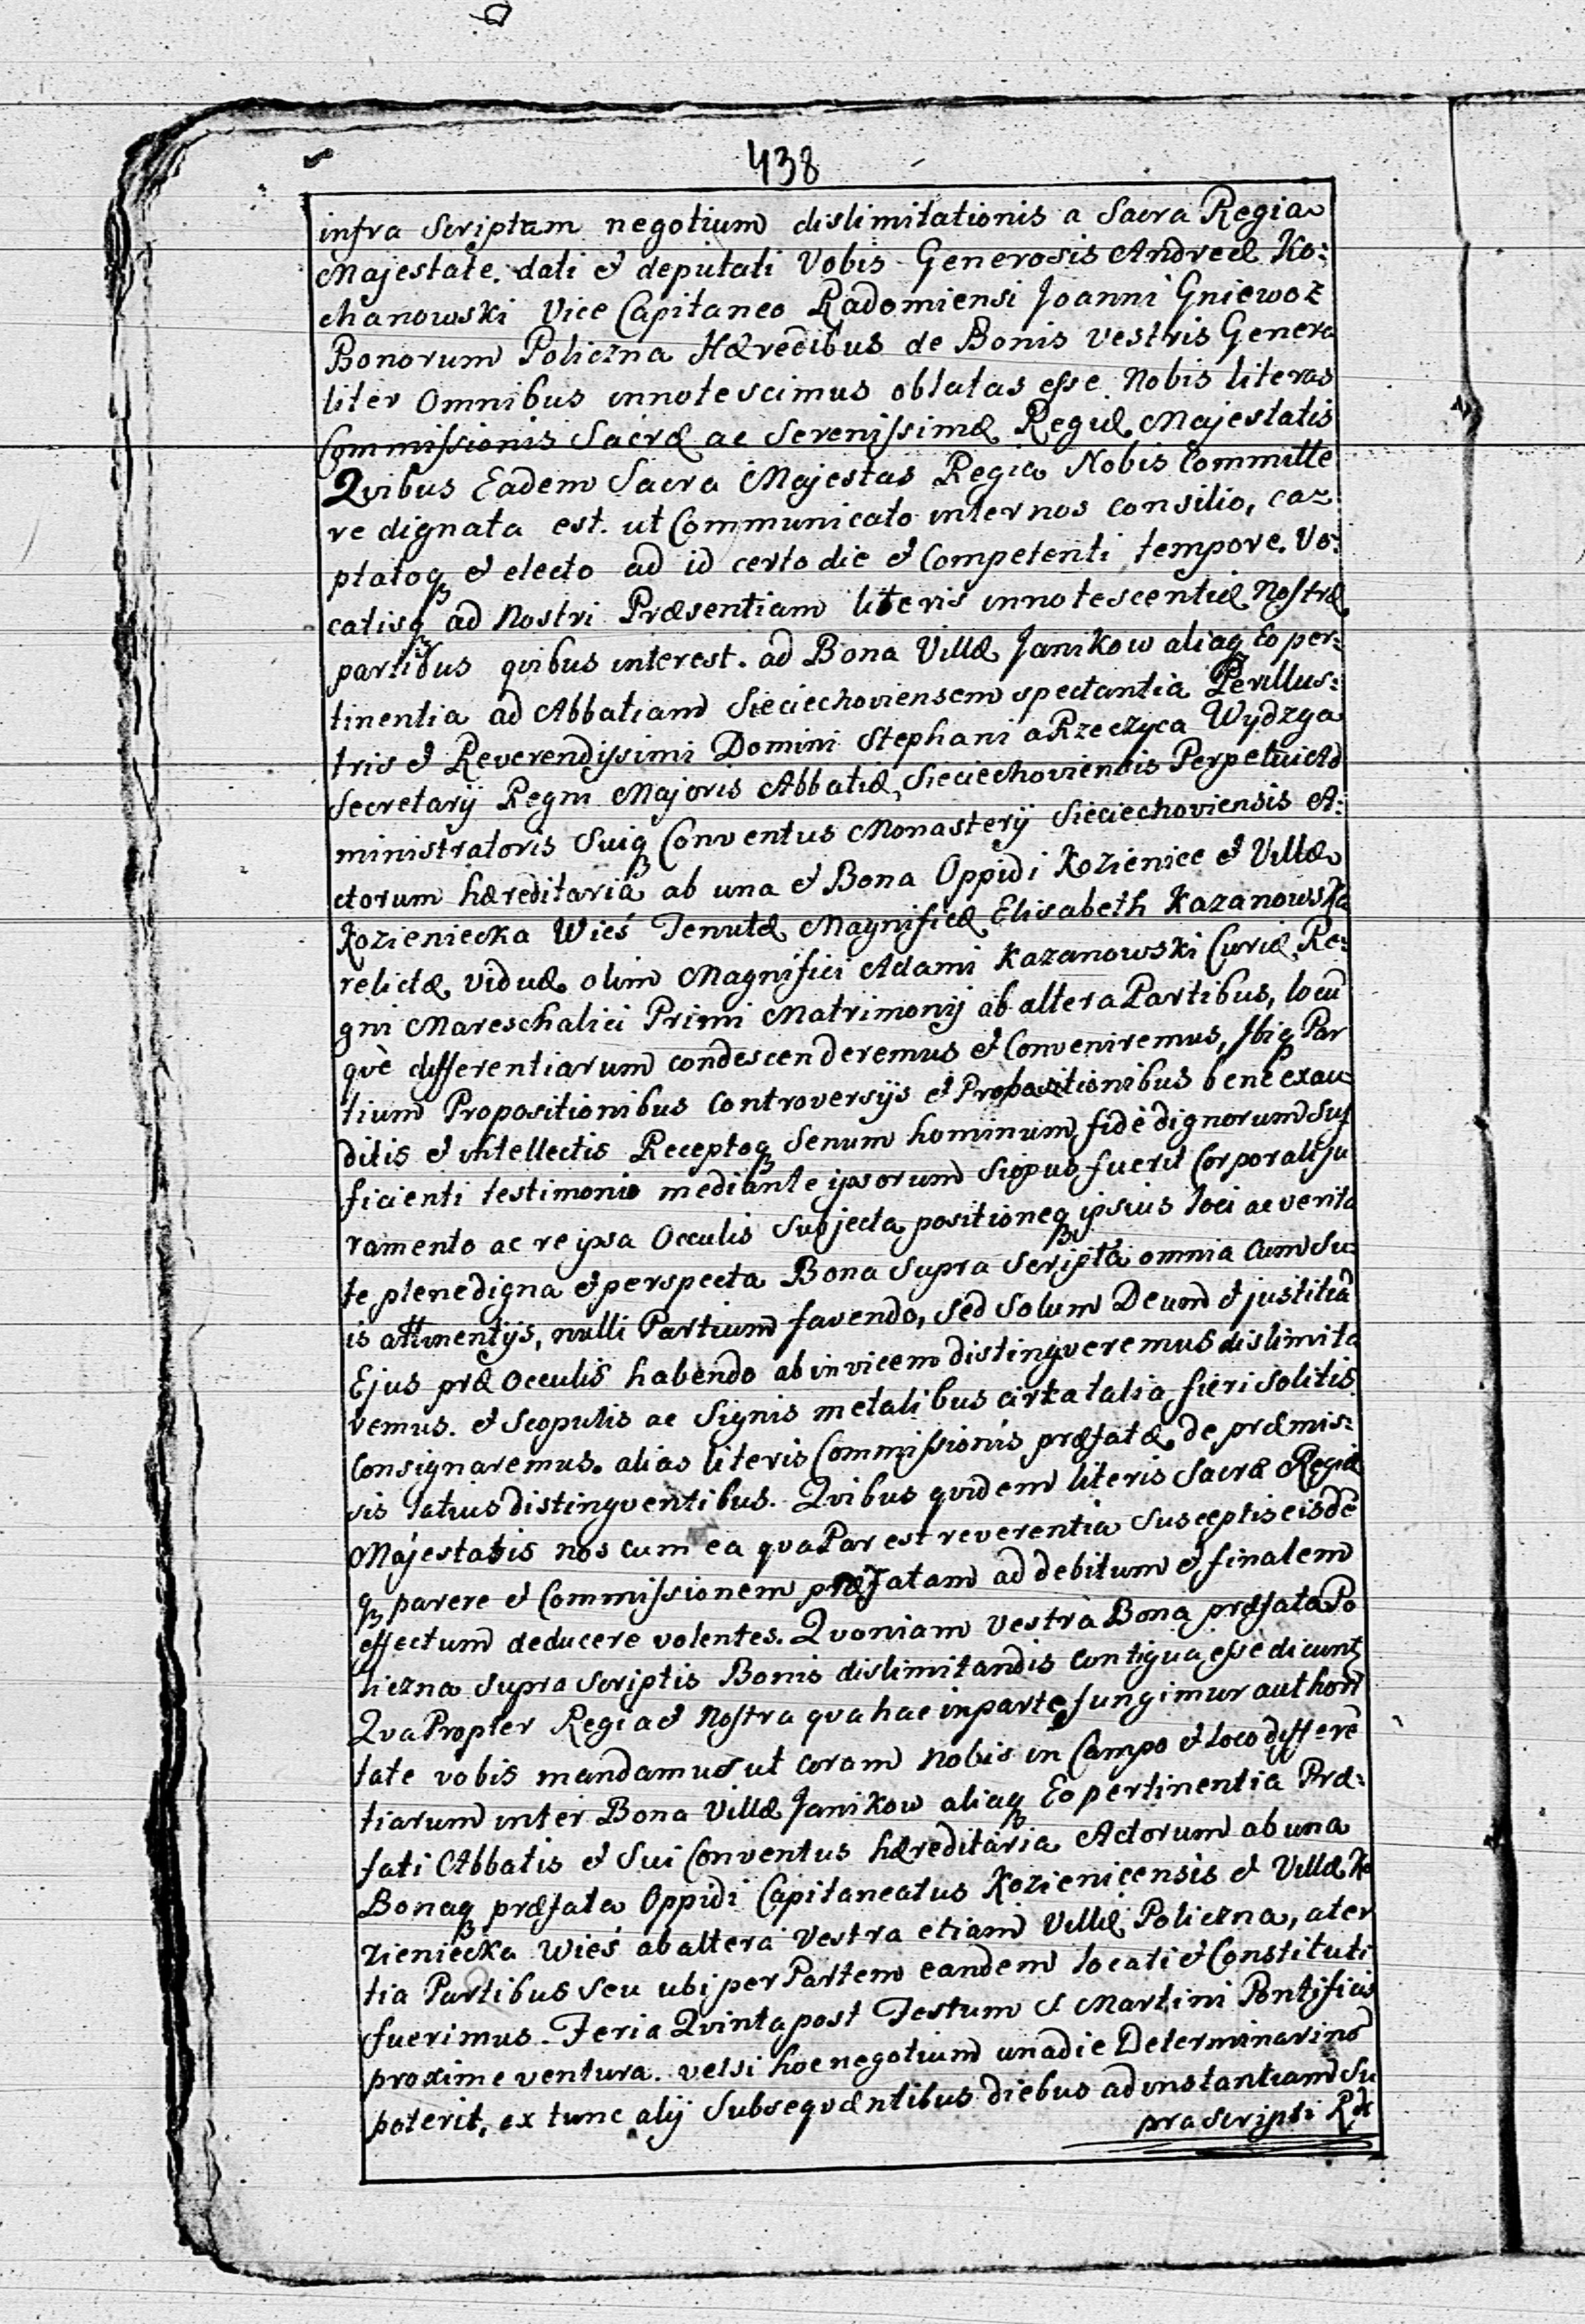 438
infra Scriptum negotium dislimitationis a Sacra Regia
Majestate. dati & deputati Vobis Generosis Andreæ Ko:
chanowski Vice Capitaneo Radomiensi Joanni Gniewoz
Bonorum Policzna Hæredibus de Bonis Vestris Genera
liter Omnibus innotescimus oblatas esse Nobis literas
Commissionis Sacræ ac Serenissimæ Regiæ Majestatis
Qvibus Eadem Sacra Majestas Regia Nobis Committe
re dignata est. ut Communicato inter nos consilio, ca=
ptatoq & electo ad id certo die & Competenti tempore. Vo:
catisq ad Nostri Præsentiam literis innotescentiæ Nostræ
partibus qvibus interest. ad Bona Villæ Janikow aliaq Eo per:
tinentia ad Abbatiam Sieciechoviensem spectantia Perillus:
tris & Reverendissimi Domini Stephani a Rzeczyca Wydzga
Secretarij Regni Majoris Abbatiæ Sieciechoviensis Perpetui Ad
ministratoris Suiq Conventus Monasterij Sieciechoviensis A:
ctorum hæreditaria ab una & Bona Oppidi Kozienice & Villæ
Kozieniecka Wieś Tenutæ Magnificæ Elisabeth Kazanowska
relictæ viduæ olim Magnifici Adami Kazanowski Curiæ Re:
gni Mareschalici Primi Matrimonij ab altera Partibus, locu
qvè differentiarum condescenderemus & Conveniremus, Ibiq Par
tium Propositionibus Controversijs & Propositionibus bene exau
ditis & intellectis Receptoq Senum hominum fide dignorum Suf
ficienti testimonio mediante ipsorum Siopus fuerit Corporali ju
ramento ac re ipsa Occulis Subjecta positioneq ipsius loci ac verita
te plene digna & perspecta Bona Supra Scripta omnia Cum Su=
is attinentijs, nulli Partium favendo, Sed Solum Deum & justitiã
Ejus præ Occulis habendo ab in vicem distingveremus dislimita
remus. & Scopulis ac Signis metalibus circa talia fieri Solitis
Consignaremus. alias literis Commissionis præfatæ de præmis:
sis latius distingventibus. Qvibus qvidem literis Sacræ Regiæ
Majestatis nos cum ea qva Par est reverentia Susceptis eisdẽ
q parere & Commissionem præfatam ad debitum & finalem
effectum deducere volentes. Qvoniam Vestra Bona præfata Po
liczna Supra Scriptis Bonis dislimitandis Contigua esse dicunt
Qva Propter Regia & Nostra qva hac in parte fungimur authori
tate vobis mandamus ut coram Nobis in Campo & loco differẽ
tiarum inter Bona Villæ Janikow aliaq Eo pertinentia Præ:
fati Abbatis & Sui Conventus hæreditaria Actorum ab una
Bonaq præfata Oppidi Capitaneatus Kozienicensis & Villæ Ko
zieniecka Wieś ab altera Vestra etiam Villæ Policzna, a ter
tia Partibus Seu ubi per Partem eandem locati & Constituti
fuerimus. Feria Qvinta post Festum S. Martini Pontificis
proxime ventura. vel si hoc negotium una die Determinari nõ
poterit, ex tunc alij Subseqventibus diebus ad instantiam Su
pra Scripti Rdi